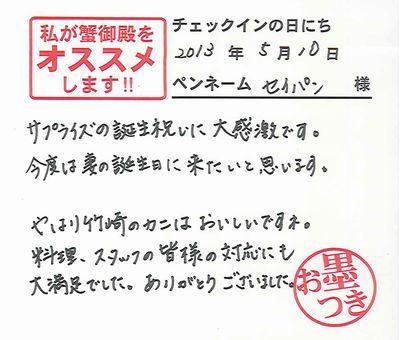 私が蟹御殿を
オススメ
します!!
チェックインの日にち
2013 年 5月10日
ペンネーム セイパン 様
サプライズの誕生祝いに大感激です。
今度は妻の誕生日に来たいと思います。
やはり竹崎のカニはおいしいですネ。
料理、スタッフの皆様の対応にも
大満足でした。ありがとうございました。
墨
おつき